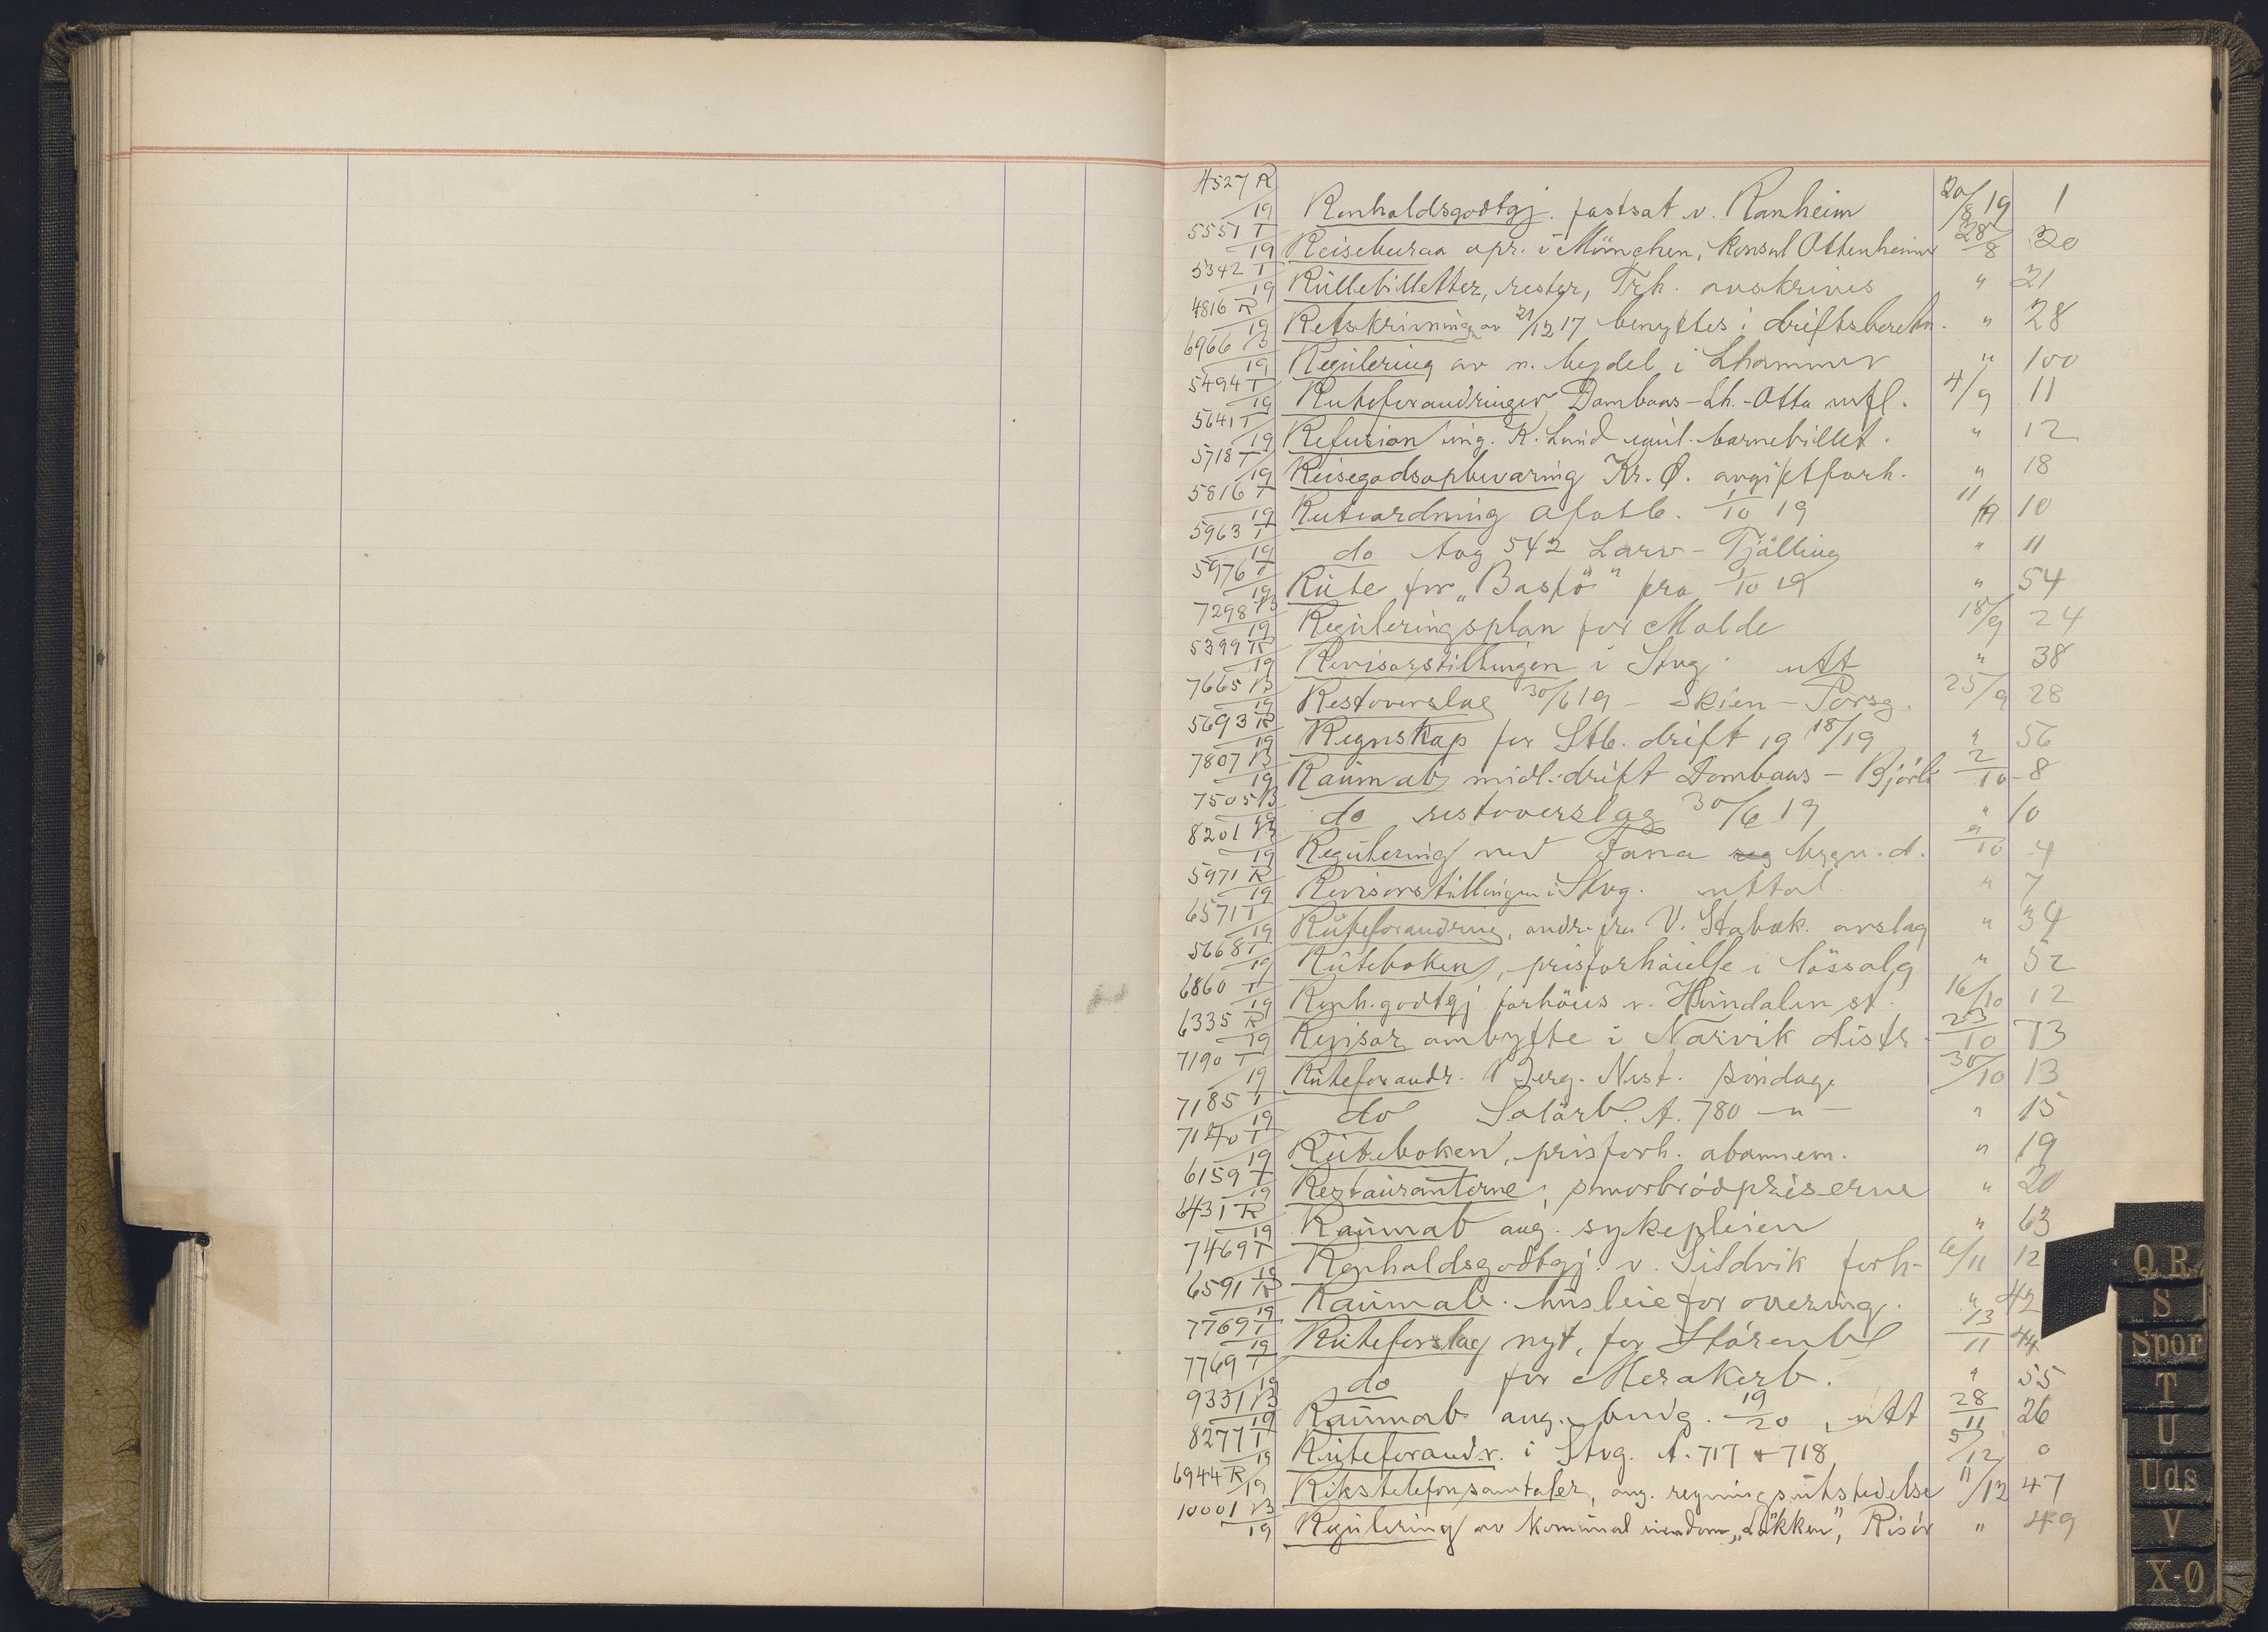 4527 R/19 Renholdsgodtgj. fastsat v. Ranheim 20/8 19 1
5551 T/19 Reisebureau opr. i München, Konsul Ottenheimer 28/8 20
5342 T/19 Rullebilletter, rester, Trh. avskrives " 21
4816 R/19 Retskrivning av 21/12 17 benyttes i driftsberetn. " 28
6966 B/19 Regulering av n. bydel i Lhammer " 100
5494 T/19 Ruteforandringer Dombaas-Lh.-Otta mfl. 4/9 11
5641 T/19 Refusion ing. K. Lund barnebillet. " 12
5718 T/19 Reisegodsopbevaring Kr. Ø. avgiftforh. " 18
5816 T/19 Ruteordning Ofotb. 1/10 19 11/9 10
5963 T/19 do tog 542 Larv-Tjølling " 11
5976 T/19 Rute for "Bastö" fra 1/10 19 " 54
7298 B/19 Reguleringsplan for Molde 18/9 24
5399 R/19 Revisorstillingen i Stvg. utt " 38
7665 B/19 Restoverslag 30/6 19 - Skien-Porsg. 25/9 28
5693 R/19 Regnskap for Stb. drift 19 18/19 " 56
7807 B/19 Raumab midl. drift Dombaas-Bjorli 2/10 8
7505 B/19 do restoverslag 30/6 19 " 10
8201 B/19 Regulering ved Fana bygn.d. 9/10 4
5971 R/19 Revisorstillingen i Stvg. uttal. " 7
6571 T/19 Ruteforandring, andr. fra V. Stabæk. avslag " 34
5668 T/19 Ruteboken, prisforhöielse i lössalg " 52
6860 T/19 Renh.godtgj forhöies v. st. 16/10 12
6335 R/19 Revisor ombytte i Narvik distr. 23/10 73
7190 T/19 Ruteforandr. Berg. Nest. söndage 30/10 13
7185 T/19 do Solörb. t. 780 -"- " 15
7140 T/19 Ruteboken, prisforh. abonnem. " 19
6159 T/19 Restauranterne, smorbrödpriserne " 20
6431 R/19 Raumab ang. sykepleien " 63
7469 T/19 Renholdsgodtgj. v. Sildvik forh. 6/11 12
6591 R/19 Raumab. husleie for " 42
7769 T/19 Ruteforslag nyt, for Störenb 13/11 44
7769 T/19 do for Merakerb. " 55
9331 B/19 Raumab ang. budg. 19/20, utt 28/11 26
8277 T/19 Ruteforandr. i Stvg. t. 717 + 718 5/12
6944 R/19 Rikstelefonsamtaler, ang. regningsutstedelse 11/12 47
10001 B/19 Regulering av komunal eiendom "Løkken", Risör " 49
Q R
S
Spor
T
U
Uds
V
X-Ø